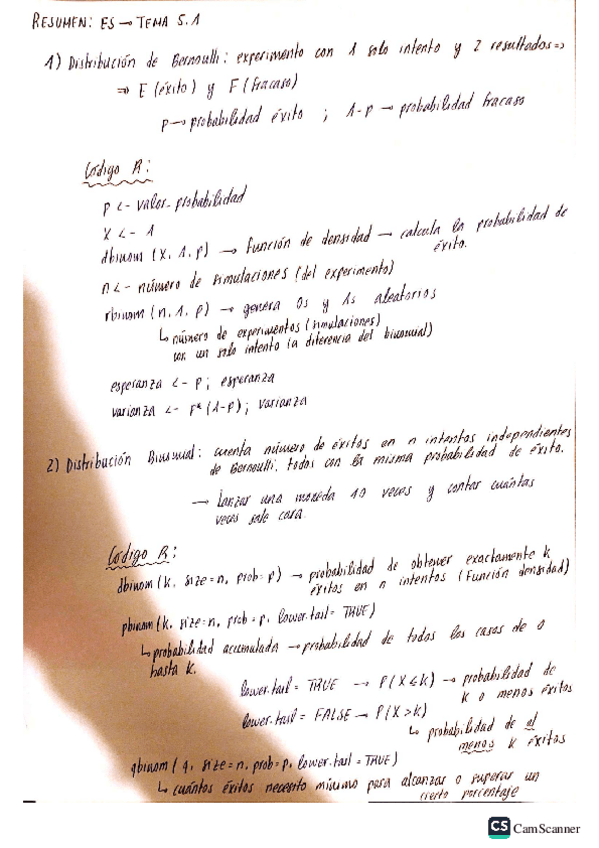 RESUMEN: ES → TEMA 5.1
1) Distribución de Bernoulli: experimento con 1 solo intento y 2 resultados =>
=> E (éxito) y F (fracaso)
p → probabilidad éxito ; 1-p → probabilidad fracaso
Código R:
p <- valor_probabilidad
x <- 1
dbinom (x, 1, p) → función de densidad → calcula la probabilidad de
éxito.
n <- número de simulaciones (del experimento)
rbinom (n, 1, p) → genera 0s y 1s aleatorios
↳ número de experimentos (simulaciones)
con un solo intento (a diferencia del binomial)
esperanza <- p ; esperanza
varianza <- p*(1-p) ; varianza
2) Distribución Binomial: cuenta número de éxitos en n intentos independientes
de Bernoulli, todos con la misma probabilidad de éxito.
→ Lanzar una moneda 10 veces y contar cuántas
veces sale cara.
Código R:
dbinom (k, size=n, prob=p) → probabilidad de obtener exactamente k
éxitos en n intentos (Función densidad)
pbinom (k, size=n, prob=p, lower.tail=TRUE)
↳ probabilidad acumulada → probabilidad de todos los casos de 0
hasta k.
lower.tail = TRUE → P(X≤k) → probabilidad de
k o menos éxitos
lower.tail = FALSE → P(X>k)
↳ probabilidad de al
menos k éxitos
qbinom (q, size=n, prob=p, lower.tail=TRUE)
↳ cuántos éxitos necesito mínimo para alcanzar o superar un
cierto porcentaje
CS CamScanner